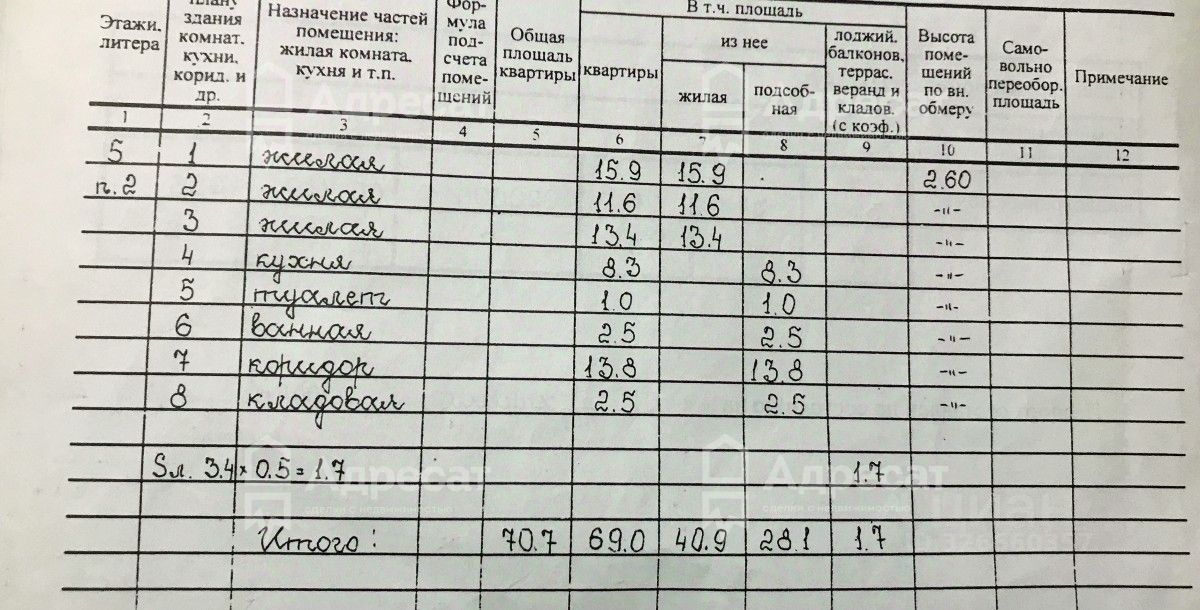 Этажи, литера | плану здания комнат, кухни, корид. и др. | Назначение частей помещения: жилая комната, кухня и т.п. | Фор- мула под- счета поме- щений | Общая площадь квартиры | В т.ч. площадь квартиры | из нее жилая | из нее подсоб- ная | лоджий, балконов, террас, веранд и кладов. (с коэф.) | Высота поме- щений по вн. обмеру | Само- вольно переобор. площадь | Примечание
1 2 3 4 5 6 7 8 9 10 11 12
5 1 жилая 15.9 15.9 2.60
п.2 2 жилая 11.6 11.6 -"-
3 жилая 13.4 13.4 -"-
4 кухня 8.3 8.3 -"-
5 туалет 1.0 1.0 -"-
6 ванная 2.5 2.5 -"-
7 коридор 13.8 13.8 -"-
8 кладовая 2.5 2.5 -"-
Sл. 3.4 × 0.5 = 1.7 1.7
Итого: 70.7 69.0 40.9 28.1 1.7
Адресат
сделки с недвижимостью
Адресат
сделки с недвижимостью